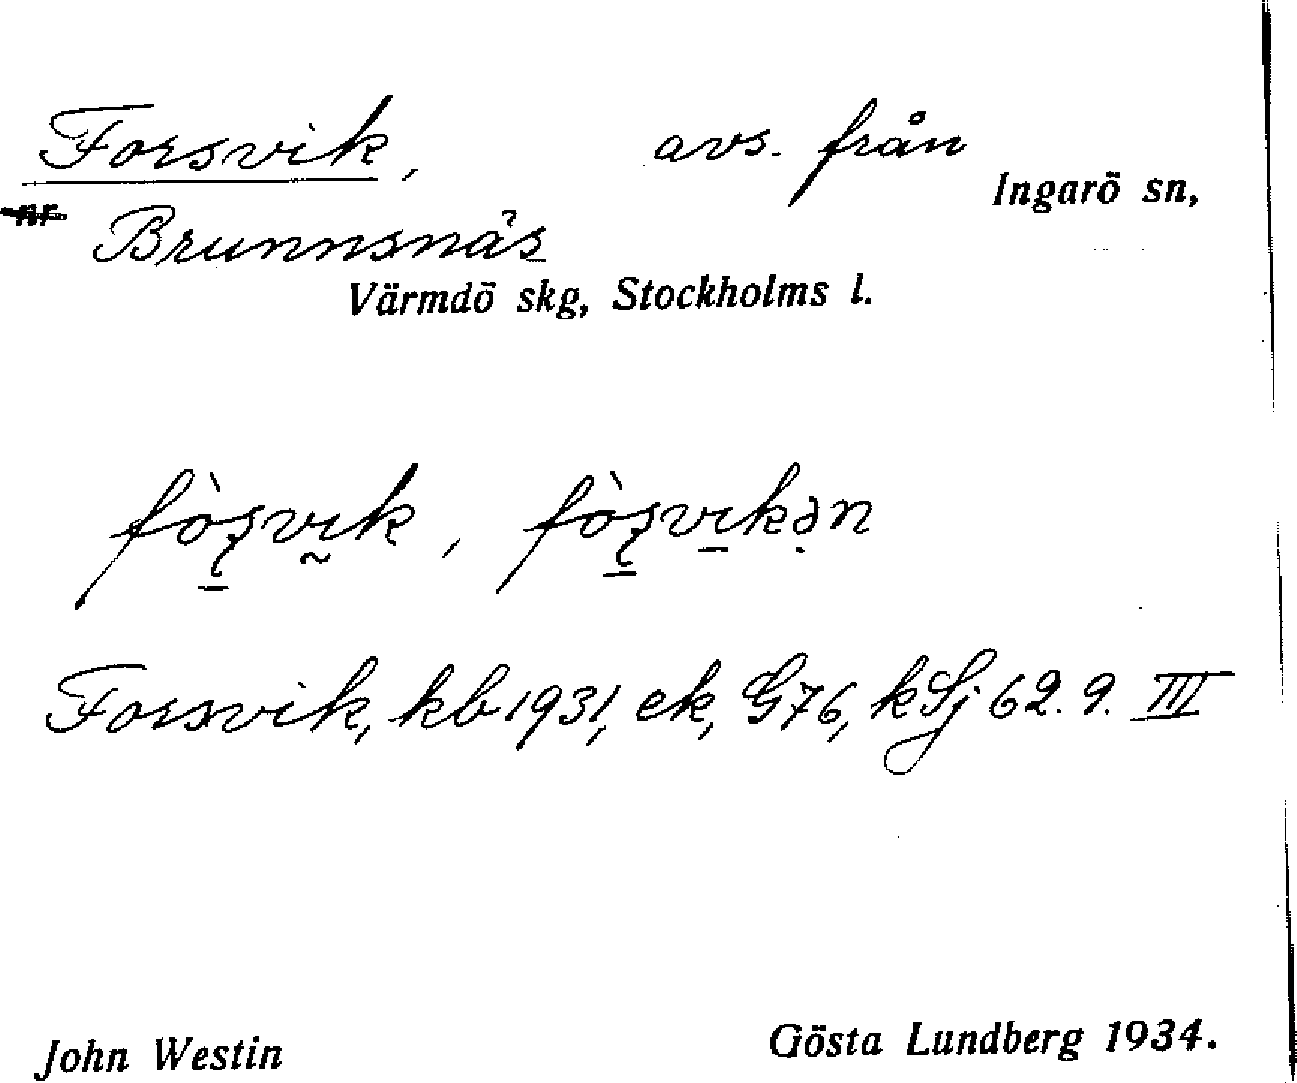 Forsvik, avs. från
Ingarö sn,
Brunnsnäs
Värmdö skg, Stockholms l.
Forsvik, kb 1931, ek, G76, kSj 62. 9. III
John Westin Gösta Lundberg 1934.